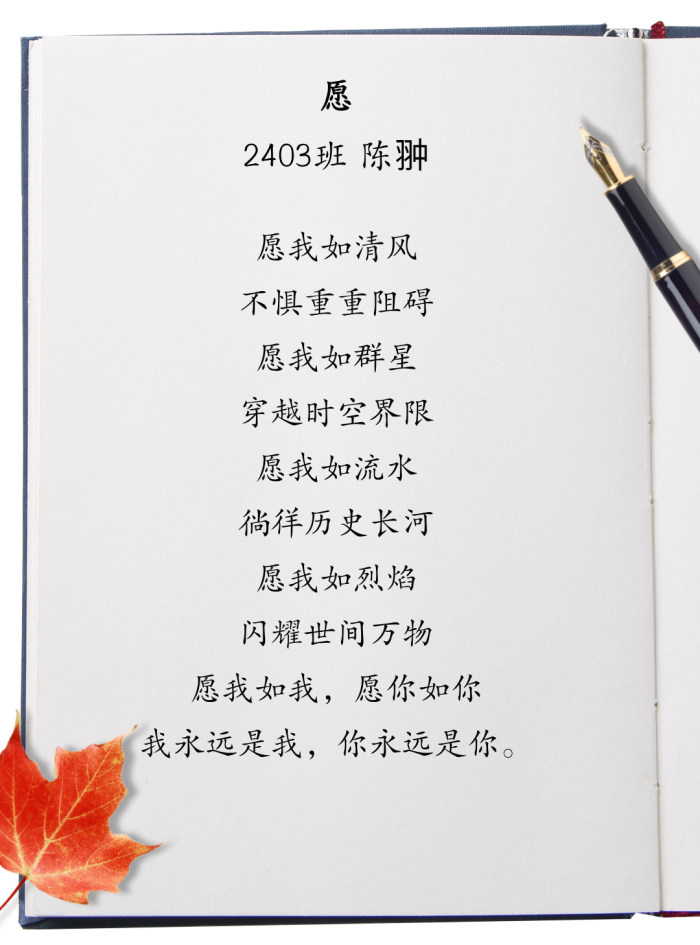 愿
2403班 陈翀
愿我如清风
不惧重重阻碍
愿我如群星
穿越时空界限
愿我如流水
徜徉历史长河
愿我如烈焰
闪耀世间万物
愿我如我，愿你如你
我永远是我，你永远是你。